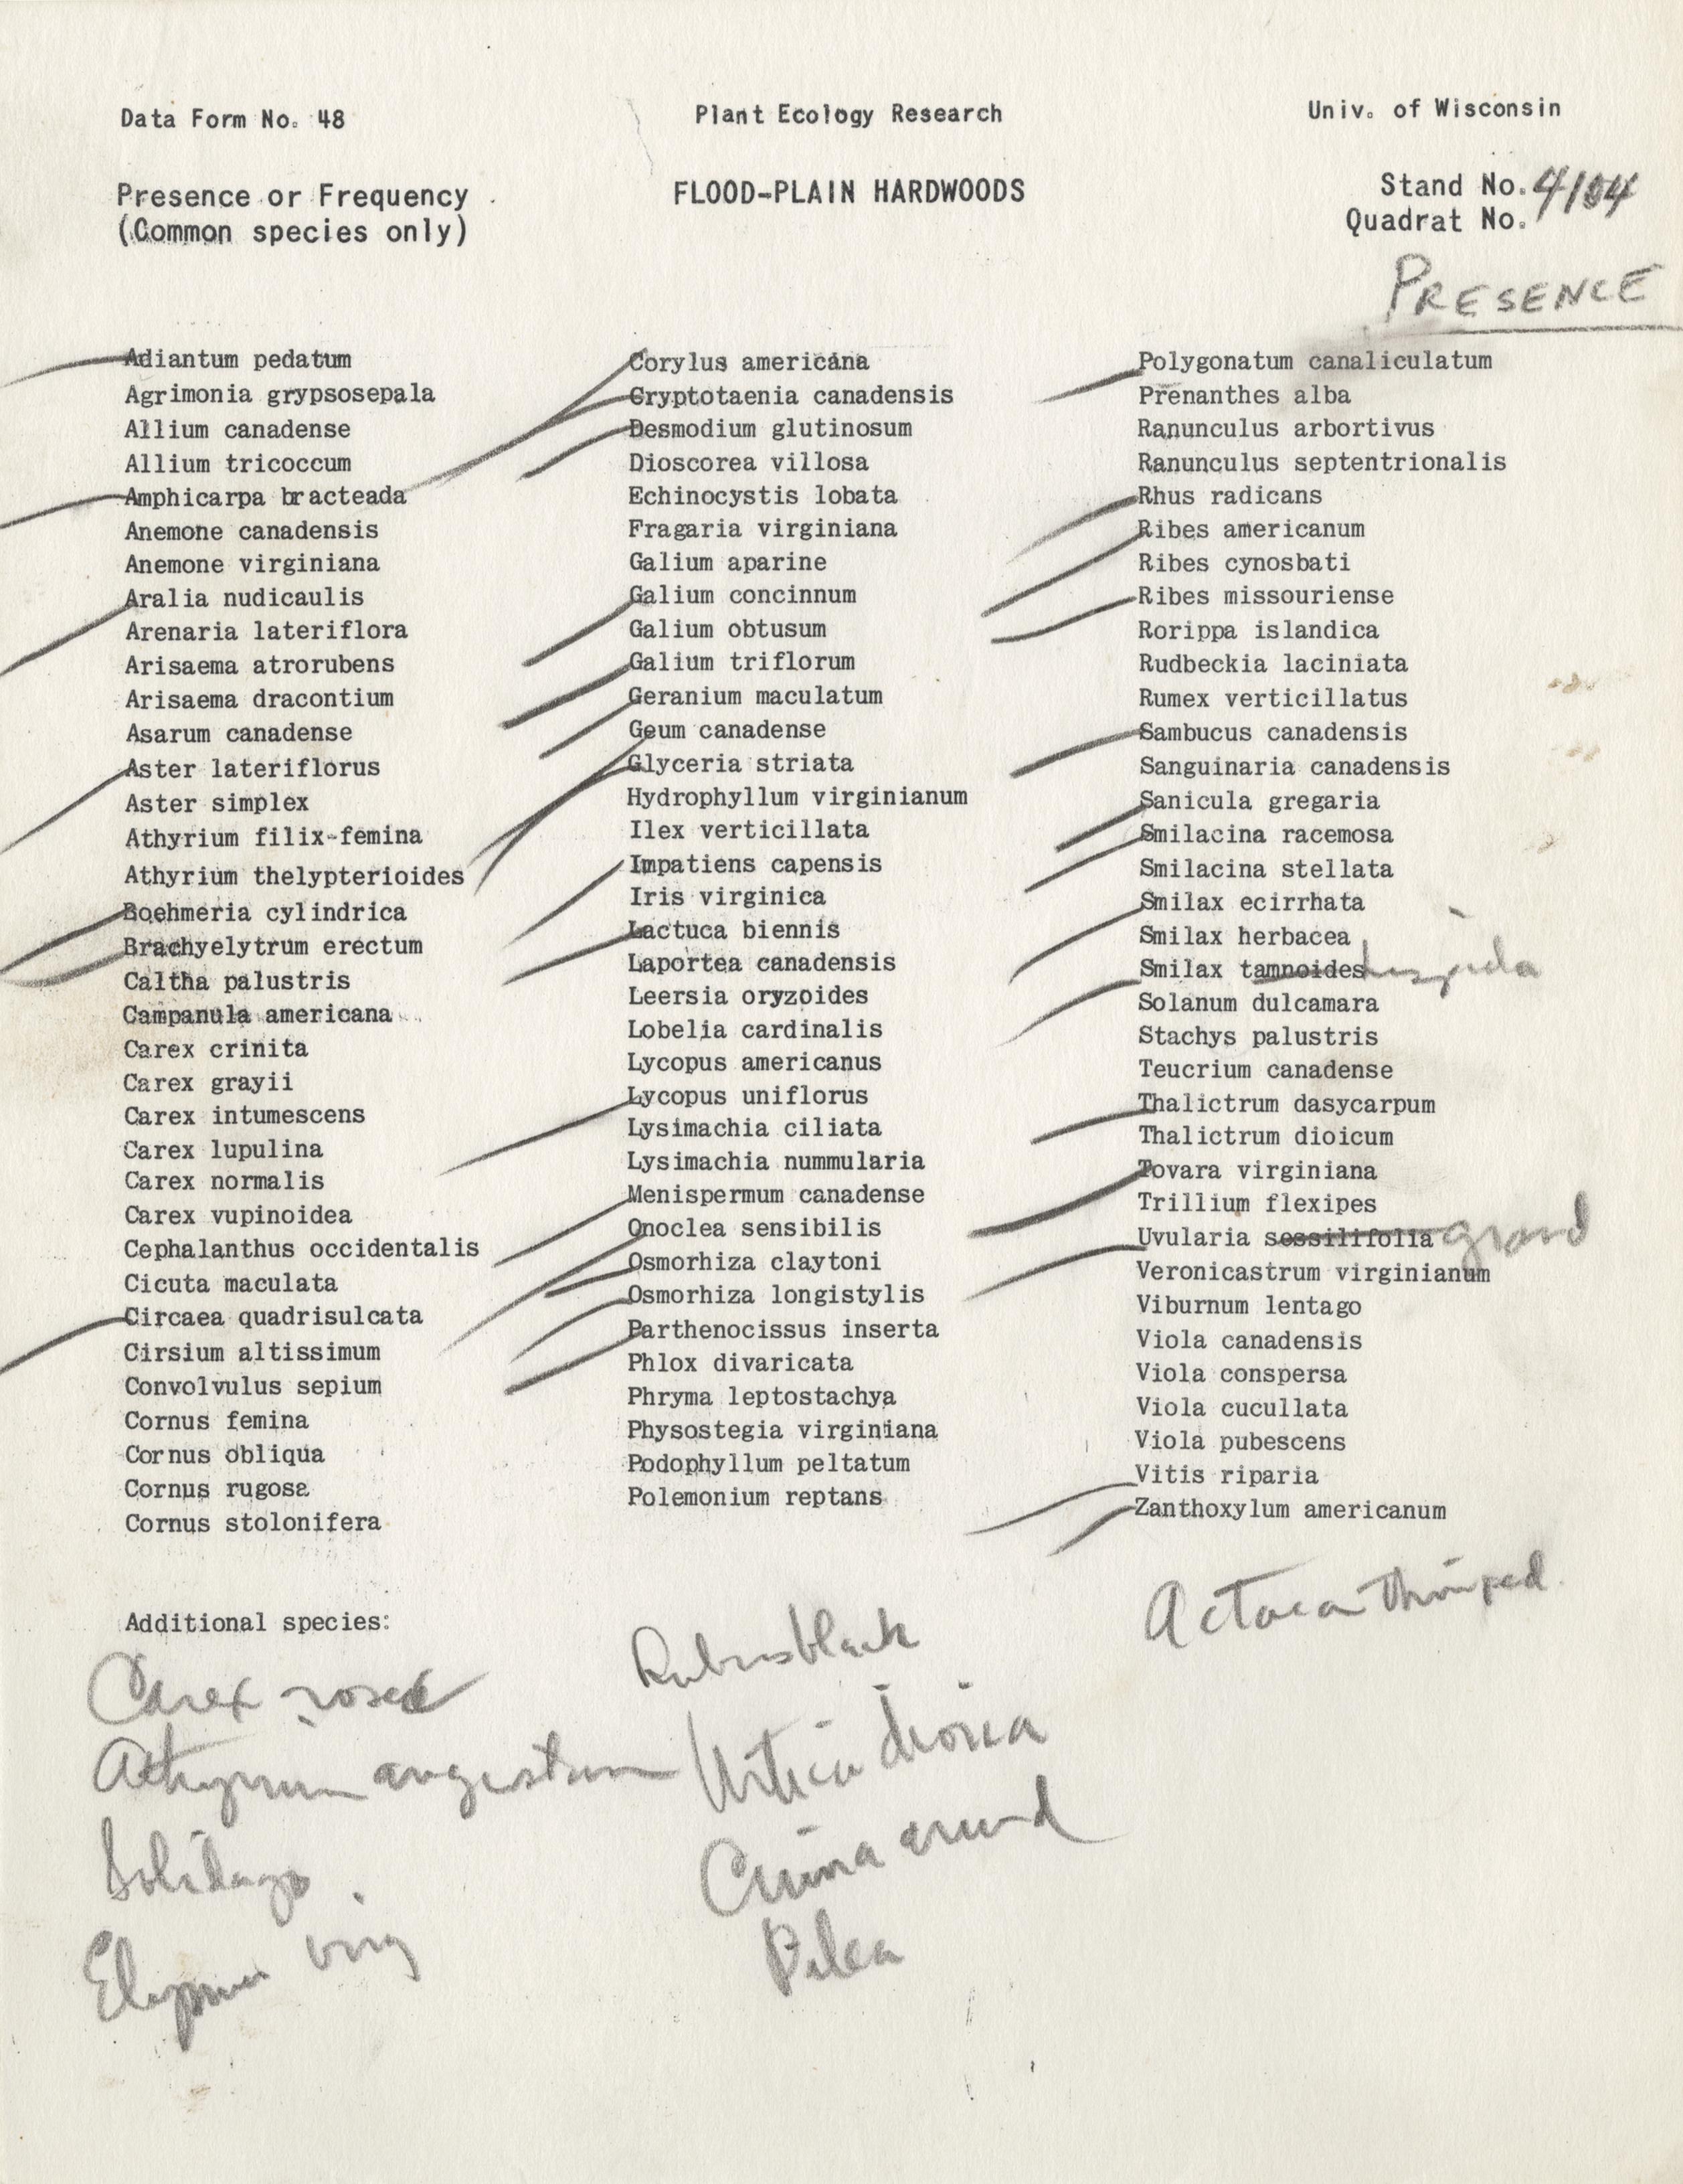 Data Form No. 48
Plant Ecology Research
Univ. of Wisconsin
Presence or Frequency
(Common species only)
FLOOD-PLAIN HARDWOODS
Stand No. 4104
Quadrat No.
PRESENCE
Adiantum pedatum
Agrimonia grypsosepala
Allium canadense
Allium tricoccum
Amphicarpa bracteada
Anemone canadensis
Anemone virginiana
Aralia nudicaulis
Arenaria lateriflora
Arisaema atrorubens
Arisaema dracontium
Asarum canadense
Aster lateriflorus
Aster simplex
Athyrium filix-femina
Athyrium thelypterioides
Boehmeria cylindrica
Brachyelytrum erectum
Caltha palustris
Campanula americana
Carex crinita
Carex grayii
Carex intumescens
Carex lupulina
Carex normalis
Carex vupinoidea
Cephalanthus occidentalis
Cicuta maculata
Circaea quadrisulcata
Cirsium altissimum
Convolvulus sepium
Cornus femina
Cornus obliqua
Cornus rugosa
Cornus stolonifera
Corylus americana
Cryptotaenia canadensis
Desmodium glutinosum
Dioscorea villosa
Echinocystis lobata
Fragaria virginiana
Galium aparine
Galium concinnum
Galium obtusum
Galium triflorum
Geranium maculatum
Geum canadense
Glyceria striata
Hydrophyllum virginianum
Ilex verticillata
Impatiens capensis
Iris virginica
Lactuca biennis
Laportea canadensis
Leersia oryzoides
Lobelia cardinalis
Lycopus americanus
Lycopus uniflorus
Lysimachia ciliata
Lysimachia nummularia
Menispermum canadense
Onoclea sensibilis
Osmorhiza claytoni
Osmorhiza longistylis
Parthenocissus inserta
Phlox divaricata
Phryma leptostachya
Physostegia virginiana
Podophyllum peltatum
Polemonium reptans
Polygonatum canaliculatum
Prenanthes alba
Ranunculus arbortivus
Ranunculus septentrionalis
Rhus radicans
Ribes americanum
Ribes cynosbati
Ribes missouriense
Rorippa islandica
Rudbeckia laciniata
Rumex verticillatus
Sambucus canadensis
Sanguinaria canadensis
Sanicula gregaria
Smilacina racemosa
Smilacina stellata
Smilax ecirrhata
Smilax herbacea
Smilax tamnoides hispida
Solanum dulcamara
Stachys palustris
Teucrium canadense
Thalictrum dasycarpum
Thalictrum dioicum
Tovara virginiana
Trillium flexipes
Uvularia sessilifolia grand
Veronicastrum virginianum
Viburnum lentago
Viola canadensis
Viola conspersa
Viola cucullata
Viola pubescens
Vitis riparia
Zanthoxylum americanum
Additional species:
Carex rosea
Athyrium angustum
Solidago
Elymus virg
Rubus black
Urtica dioica
Cinna arund
Pilea
Actaea